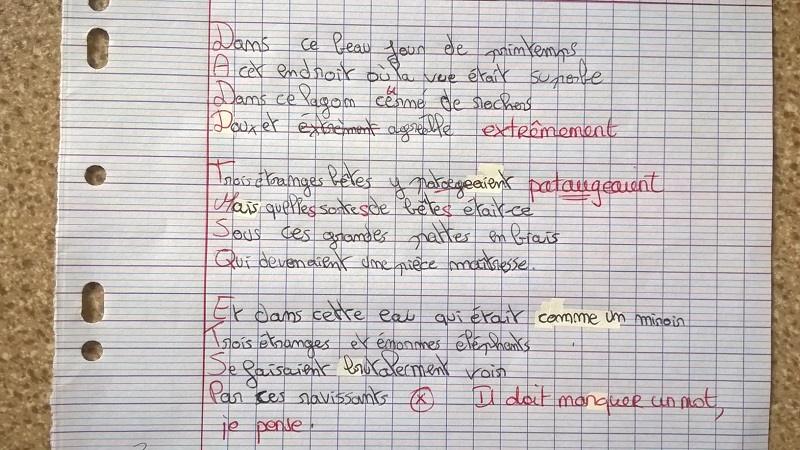 Dans ce beau jour de printemps
A cet endroit où la vue était superbe
Dans ce lagon cerné de rochers
Doux et extrèment agréable extrêmement
Trois étranges bêtes y patogeaient pataugeaient
Mais quelles sortes de bêtes était-ce
Sous ces grandes pattes en biais
Qui devenaient une pièce maitresse.
Et dans cette eau qui était comme un miroir
Trois étranges et énormes éléphants
Se faisaient brutalement voir
Par ces ravissants Il doit manquer un mot,
je pense.